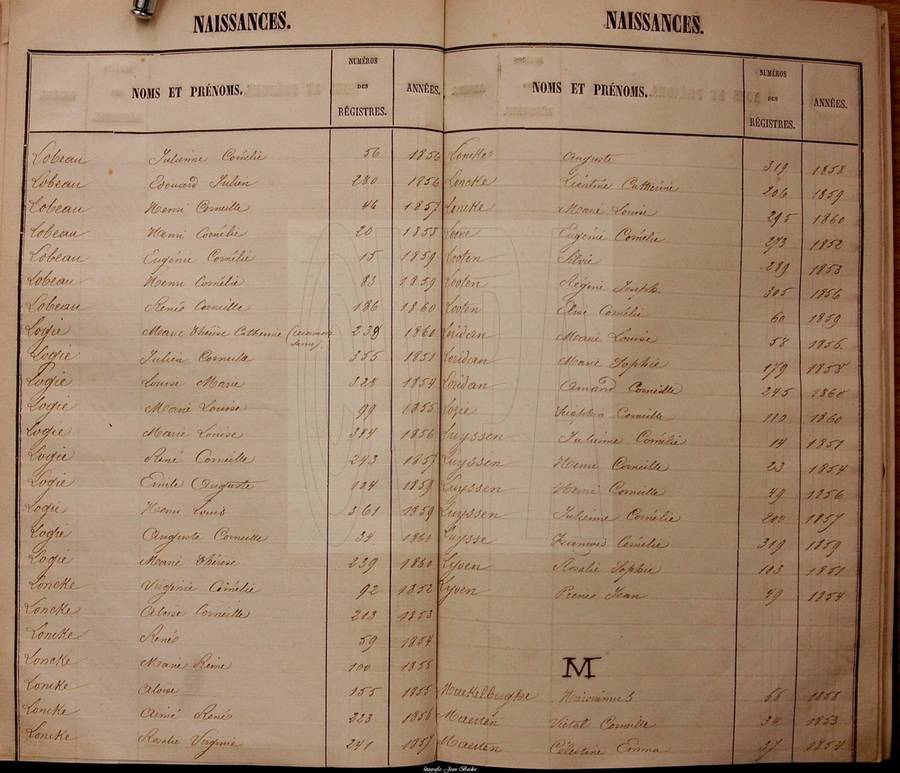 NAISSANCES.
NOMS ET PRÉNOMS. NUMÉROS DES RÉGISTRES. ANNÉES.
Lobeau Julienne Cornélie 56 1856
Lobeau Edouard Julien 280 1856
Lobeau Henri Corneille 46 1857
Lobeau Henri Cornélie 20 1858
Lobeau Eugenie Cornélie 15 1859
Lobeau Henri Cornélie 83 1859
Lobeau René Corneille 186 1860
Logie Marie Thérèse Catherine 238 1860
Logie Julien Corneille 355 1851
Logie Louise Marie 328 1854
Logie Marie Louise 99 1855
Logie Marie Louise 384 1856
Logie René Corneille 243 1857
Logie Emile Auguste 184 1859
Logie Henri Louis 361 1859
Logie Auguste Corneille 34 1860
Logie Marie Thérèse 239 1860
Loncke Virginie Cornélie 92 1852
Loncke Aloise Corneille 213 1853
Loncke René 59 1854
Loncke Marie Reine 100 1855
Loncke Aloise 155 1855
Loncke Aimé René 223 1856
Loncke Rosalie Virginie 241 1857
NAISSANCES.
NOMS ET PRÉNOMS. NUMÉROS DES RÉGISTRES. ANNÉES.
Loncke Auguste 319 1858
Loncke Catherine 206 1859
Loncke Marie Louise 295 1860
Eugénie Cornélie 273 1852
Looten Silvie 289 1853
Looten Régine Joseph 305 1856
Looten Elsie Cornélie 60 1859
Loridan Marie Louise 58 1856
Loridan Marie Sophie 179 1858
Loridan Amand Corneille 245 1860
Lozie Corneille 110 1860
Luyssen Julienne Cornélie 14 1851
Luyssen Henri Corneille 23 1854
Luyssen Henri Corneille 49 1856
Luyssen Julienne Cornélie 200 1857
Luysse Cornélie 319 1859
Lyven Rosalie Sophie 103 1851
Lyven Jean 49 1854
M
Maekelberghe 68 1858
Maerten Victor Corneille 34 1853
Maerten Célestine Emma 37 1854
fotografie Jean Baden